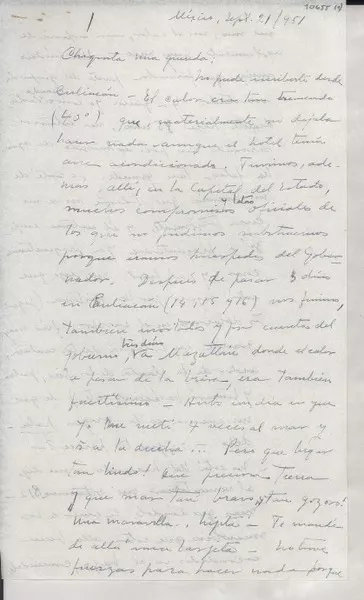 México, Sept. 21/951
Chiquita mía querida:
No pude escribirte desde
Culiacán - El calor era tan tremendo
que, materialmente no dejaba
hacer nada - aunque el hotel tenía
aire acondicionado. Tuvimos, ade-
más, allí, en la Capital del Estado,
muchos compromisos oficiales de
los que no pudimos substraernos
porque éramos huéspedes del Gober-
nador. Después de pasar 3 días
en Culiacán (14, 15 y 16) nos fuimos,
también invitados y por cuentas del
Gobierno, a Mazatlán donde el calor
a pesar de la brisa, era también
fuertísimo - Hubo un día en que
yo me metí 4 veces al mar y
a la ducha... Pero que lugar
tan lindo! Que preciosa Tierra
y que mar tan bravo, tan gozoso!
Una maravilla, hijita - Te mandé
de allí una tarjeta - No tuve
fuerzas para hacer nada porque